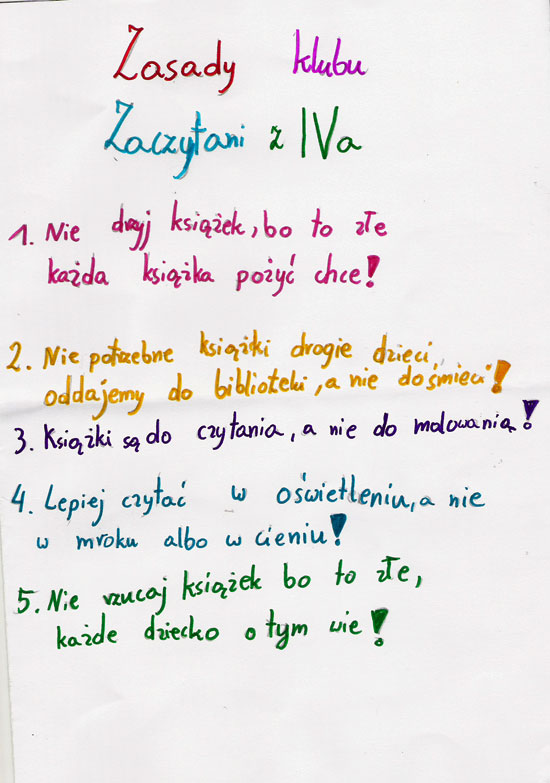 Zasady klubu
Zaczytani z IVa
1. Nie dryj książek, bo to złe
każda książka pożyć chce!
2. Nie potrzebne książki drogie dzieci,
oddajemy do biblioteki, a nie do śmieci!
3. Książki są do czytania, a nie do malowania!
4. Lepiej czytać w oświetleniu, a nie
w mroku albo w cieniu!
5. Nie rzucaj książek bo to złe,
każde dziecko o tym wie!